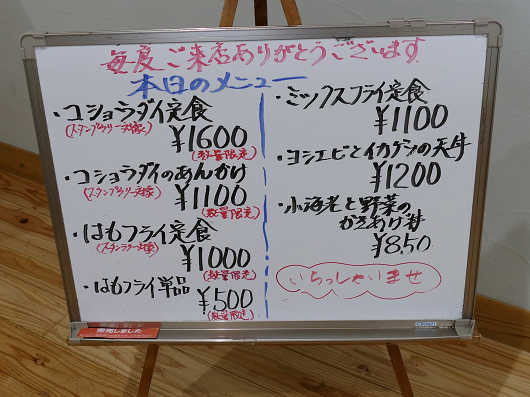 毎度ご来店ありがとうございます
本日のメニュー
・コショウダイ定食
(スタンプラリー対象)
¥1600
(数量限定)
・コショウダイのあんかけ
(スタンプラリー対象)
¥1100
(数量限定)
・はもフライ定食
(スタンプラリー対象)
¥1000
(数量限定)
・はもフライ単品
¥500
(数量限定)
・ミックスフライ定食
¥1100
・ヨシエビとイカゲソの天丼
¥1200
・小海老と野菜の
かきあげ丼
¥850
いらっしゃいませ
完売しました